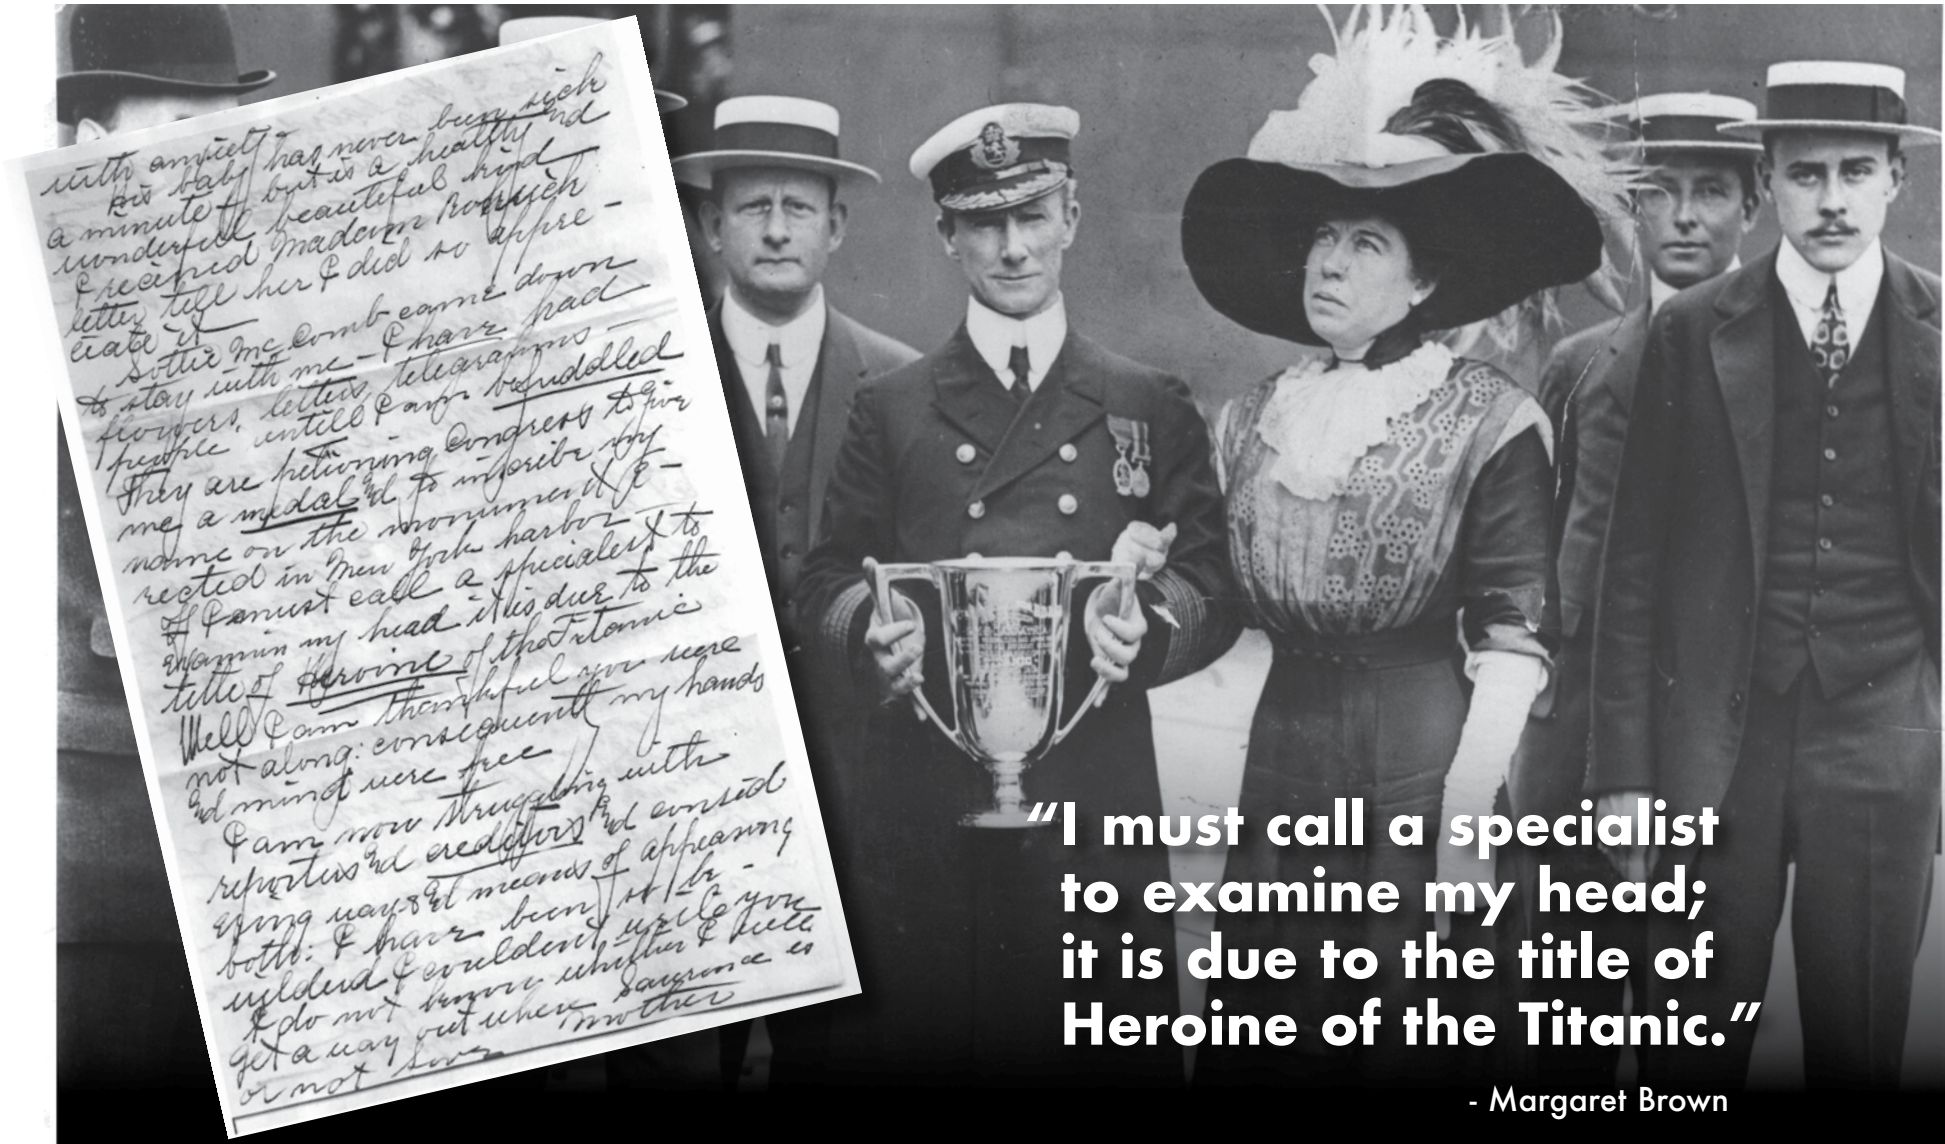 with anxiety
his baby has never been sick
a minute but is a healthy nd
wonderful beautiful kind
I received Madam Rostrich
letter tell her I did so appre-
ciate it
Lottie McComb came down
to stay with me - I have had
flowers, letters, telegrams -
people untill I am befuddled
They are petioning Congress to give
me a medal nd to inscribe my
name on the monument e-
rected in New York harbor -
If I must call a specialest to
examin my head it is due to the
title of Heroine of the Titanic
Well I am thankful you were
not along: consequentt my hands
nd mind were free
I am now struggling with
reporters nd creditors nd
ering ways nd means of appeasing
both: I have been so be-
wilderd I couldent write you
I do not know whither I will
get a way out where Lawrence is
or not Love Mother
“I must call a specialist
to examine my head;
it is due to the title of
Heroine of the Titanic.”
- Margaret Brown